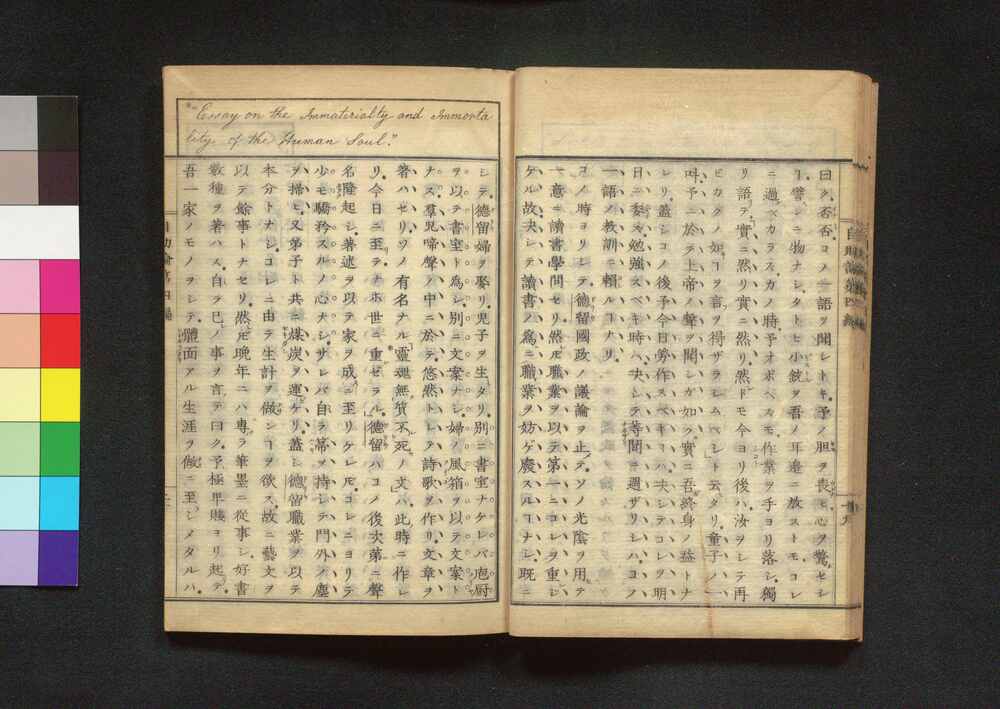 曰ク、否否、コノ一語ヲ聞シトキ、予ノ胆ヲ喪ヒ心ヲ驚セシ
ヿ、譬シニ物ナシ、タトヒ小銃ヲ吾ノ耳邊ニ放ストモ、コレ
ニ過ベカラズ、カノ時、予オボヘズモ作業ヲ手ヨリ落シ、獨
リ語テ、實ニ然リ實ニ然リ、然ドモ今ヨリ後ハ、汝ヲシテ再
ビカクノ如ヿヲ言ヲ得ザラシムベシト云タリ、童子ノ一
呌、予ニ於テ上帝ノ聲ヲ聞シガ如ク、實ニ吾終身ノ益トナ
レリ、蓋シコノ後、予今日勞作スベキヿハ、決シテコレヲ明
日ニ委ズ、勉強スベキ時ハ、決シテ等閒ニ過ザリシハ、コノ
一語ノ教訓ニ頼ルヿナリ、
コノ時ヨリシテ、德留國政ノ議論ヲ止テ、ソノ光陰ヲ用テ
一意ニ讀書學問セリ、然ㇳモ職業ヲ以テ第一ニコレヲ重ン
ケル故、決シテ讀書ノ為ニ職業ヲ妨ゲ廢スルヿナシ、既ニ
"Essay on the Immateriality and Immorta
lity of the Human Soul."
シテ、德留婦ヲ娶リ、兒子ヲ生タリ、別ニ書室ナケレバ、庖厨
ヲ以テ書室ト為シ、別ニ文案ナシ、婦ノ風箱ヲ以テ文案ト
ナス、羣兒啼聲ノ中ニ於テ、悠然トシテ詩歌ヲ作リ文章ヲ
著ハセリ、ソノ有名ナル靈魂無質不死ノ文ハ、此時ニ作レ
リ、今日ニ至テナホ世ニ重ゼラル、德留ハコノ後次第ニ聲
名隆起シ、著述ヲ以テ家ヲ成ニ至リケレㇳモ、コレニヨリテ
少モ驕矜スルノ心ナシ、サレバ自ラ帚ヲ持シテ門外ノ塵
ヲ掃ヒ、又弟子ト共ニ煤炭ヲ運ケリ、蓋シ德留職業ヲ以テ
本分トナシ、コレニ由テ生計ヲ做ンヿヲ欲ス、故ニ藝文ヲ
以テ餘事トナセリ、然ㇳモ晩年ニハ專ラ筆墨ニ從事シ、好書
數種ヲ著ハス、自ラ己ノ事ヲ言テ曰ク、予極卑賤ヨリ起テ、
吾一家ノモノヲシテ、體面アル生涯ヲ做ニ至シメタルハ、